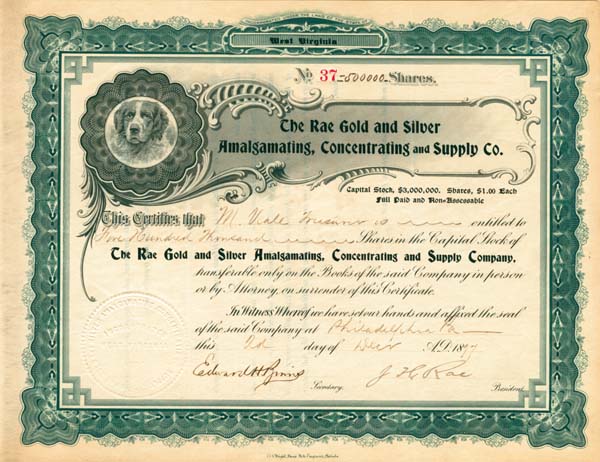 West Virginia
No 37 -500000- Shares.
The Rae Gold and Silver
Amalgamating, Concentrating and Supply Co.
Capital Stock, $3,000,000. Shares, $1.00 Each
Full Paid and Non-Assessable
This Certifies that M. Vale is entitled to
Five Hundred Thousand Shares in the Capital Stock of
The Rae Gold and Silver Amalgamating, Concentrating and Supply Company,
transferable only on the Books of the said Company in person
or by Attorney, on surrender of this Certificate.
In Witness Whereof we have set our hands and affixed the seal
of the said Company at Philadelphia Pa
this 2d day of Dec'r A.D. 1897
Edward H. J H Rae
Secretary. President